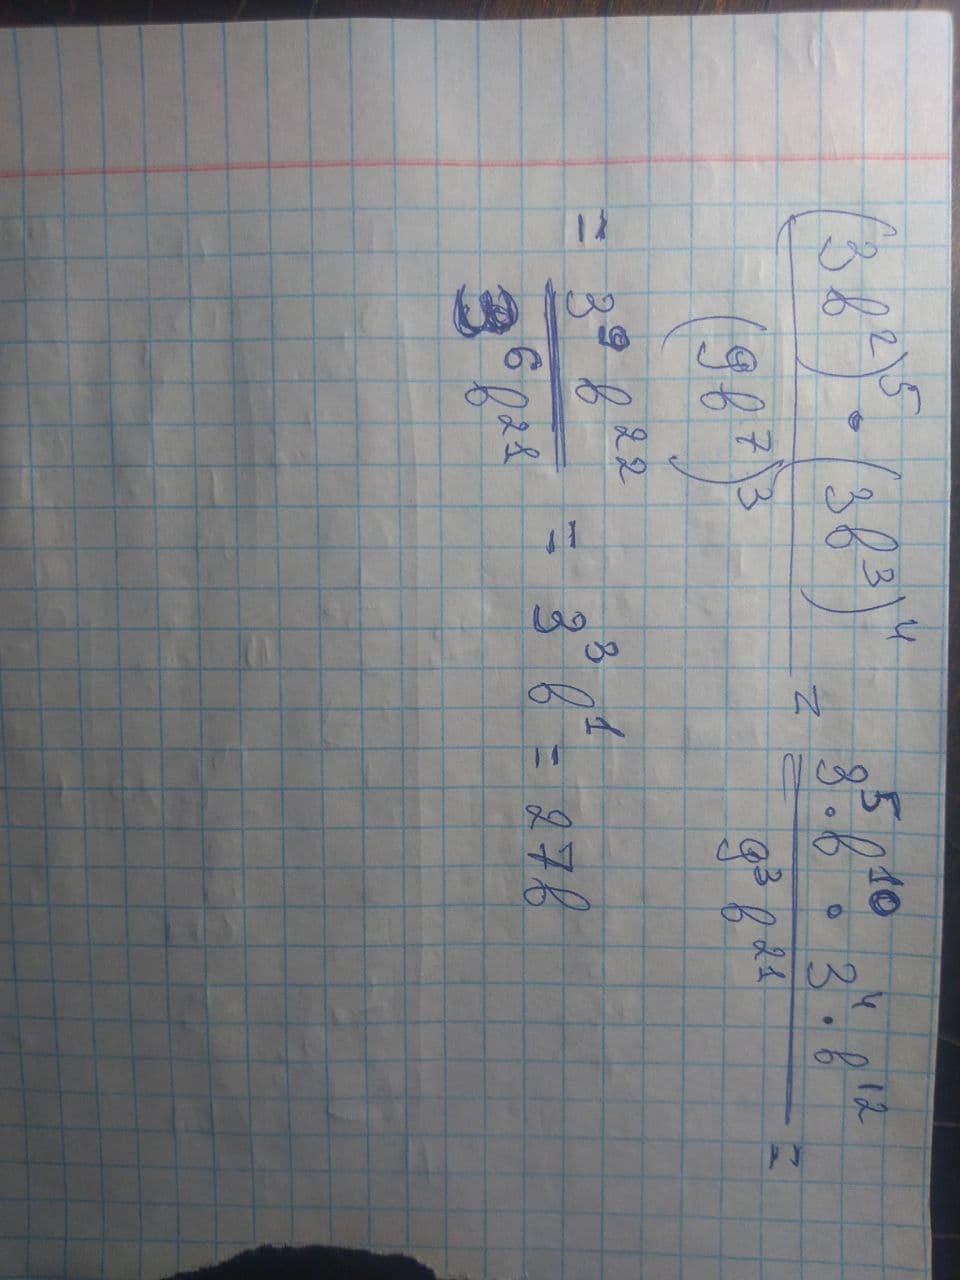 (3b²)⁵ · (3b³)⁴ / (9b⁷)³ = 3⁵ · b¹⁰ · 3⁴ · b¹² / 9³ b²¹ =
= 3⁹ b²² / 3⁶ b²¹ = 3³ b¹ = 27b